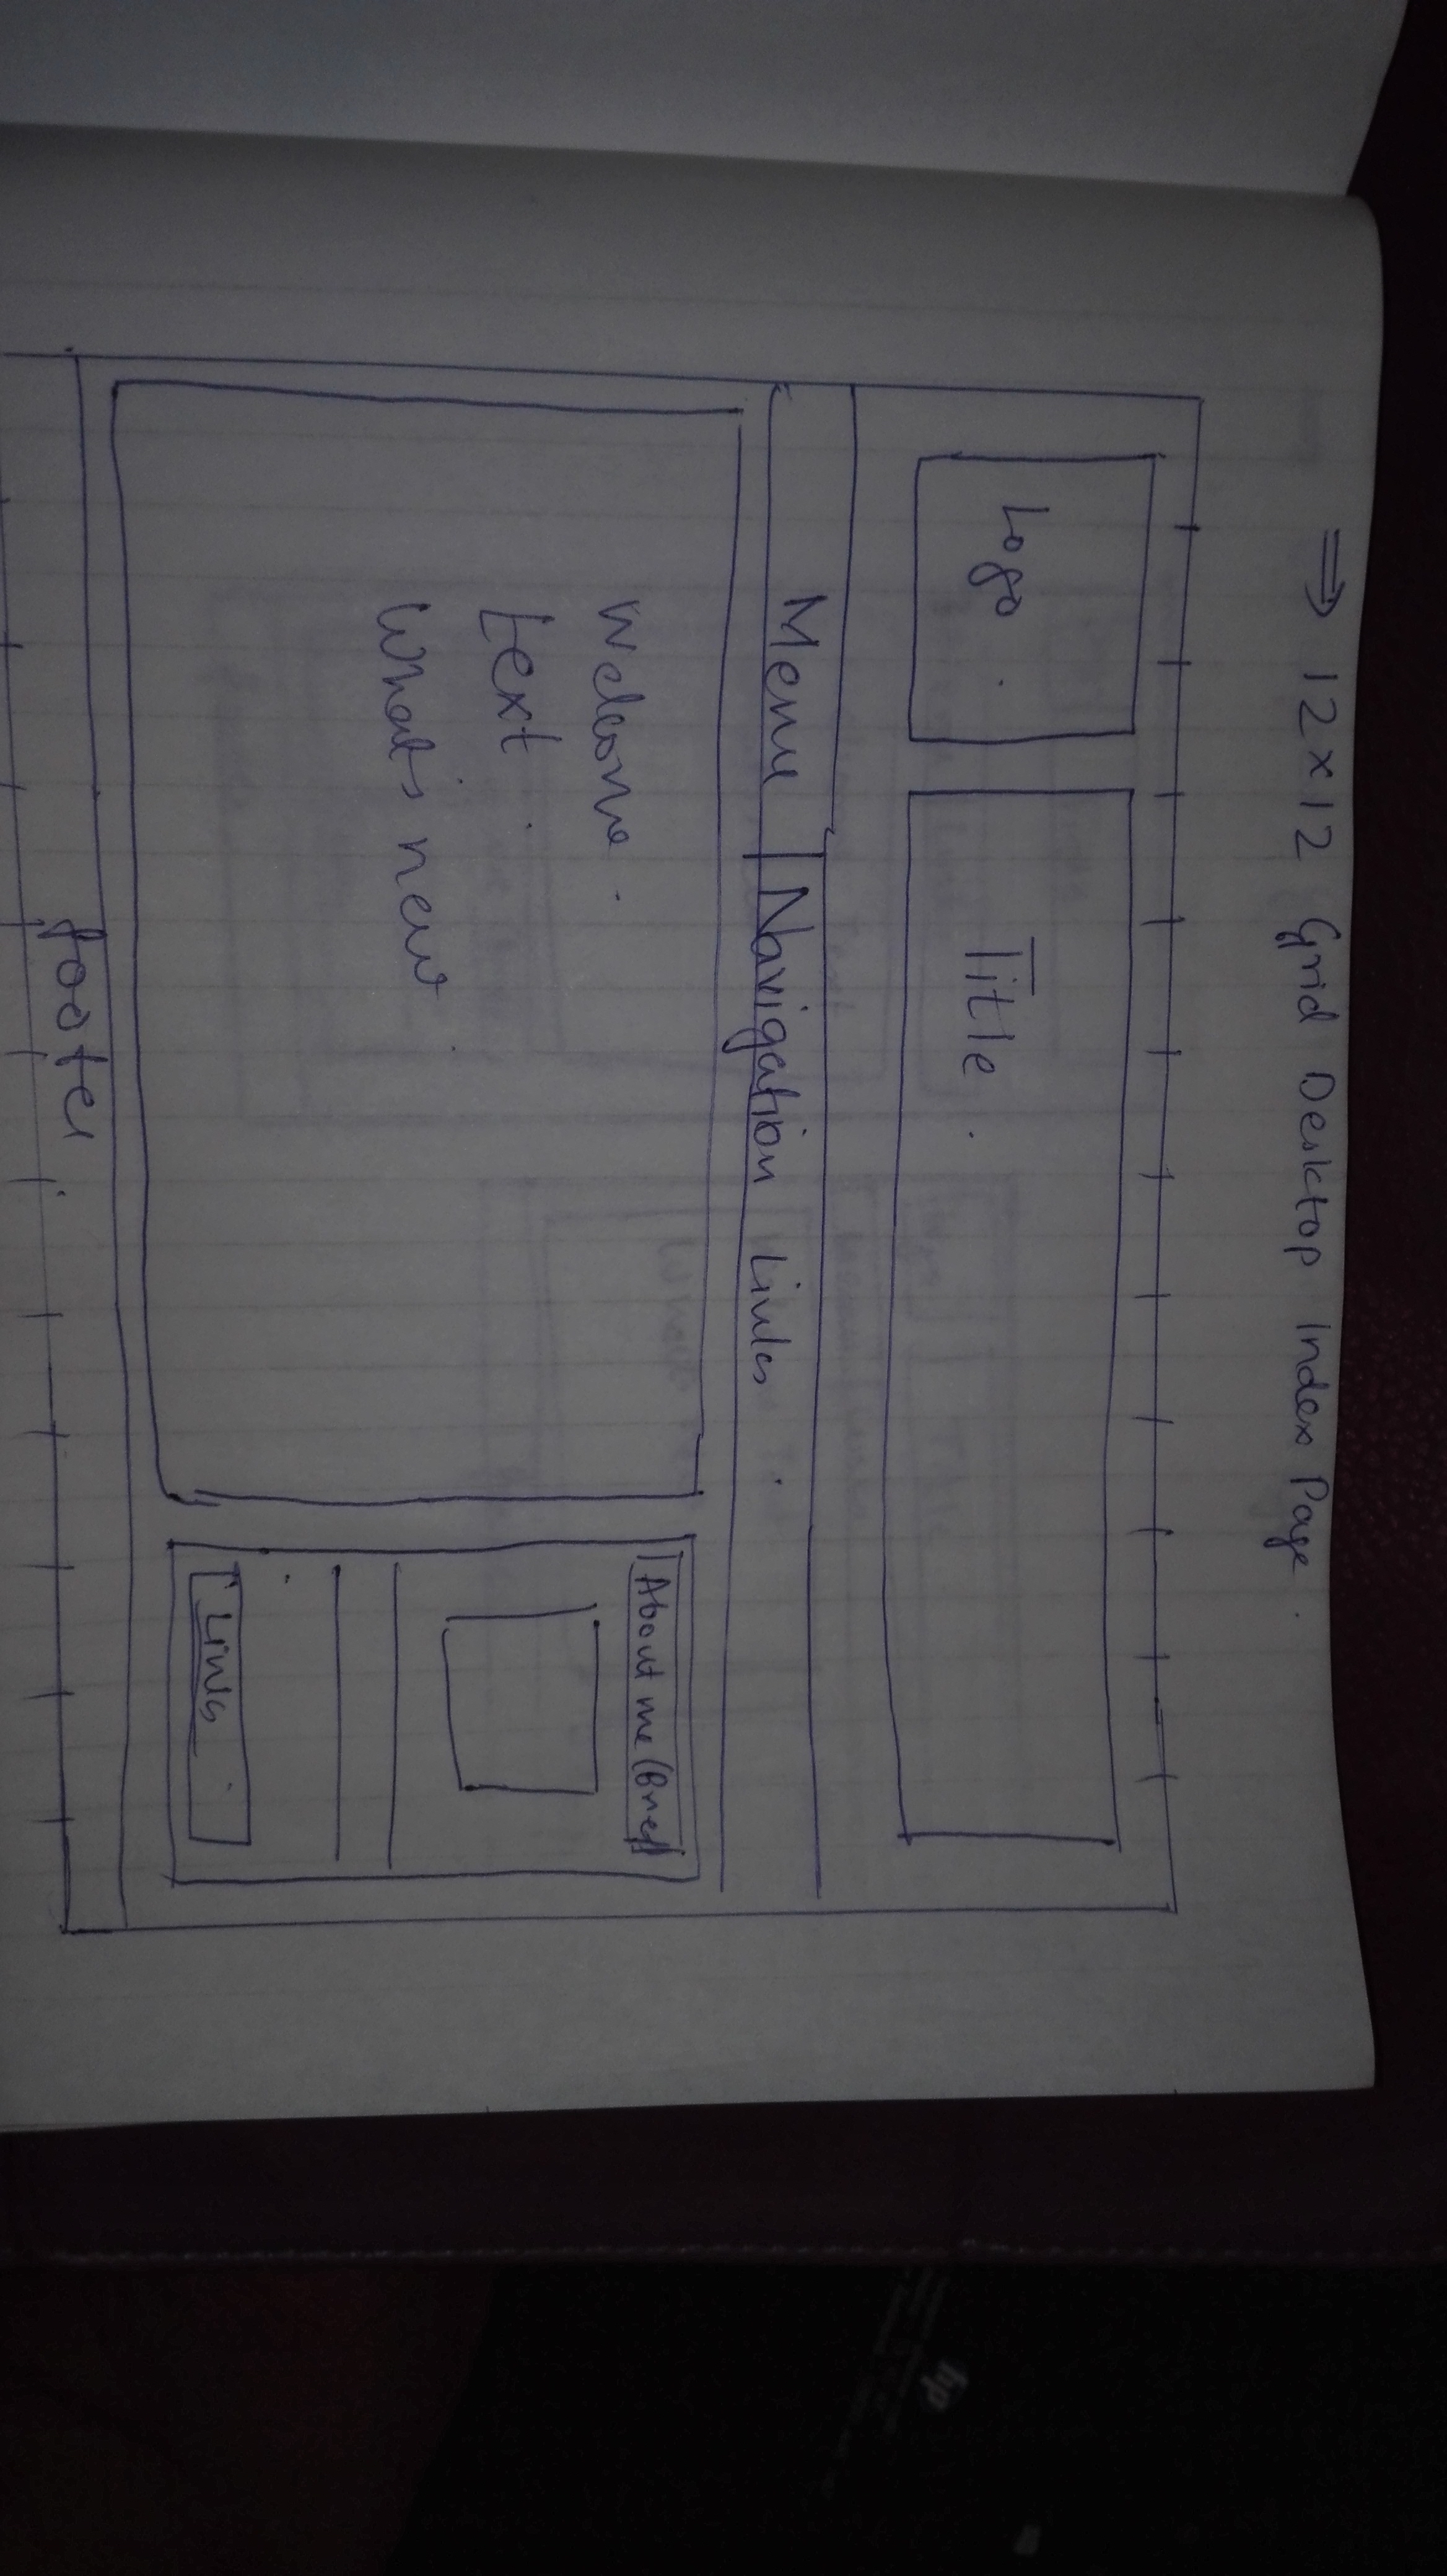 ⇒ 12x12 Grid Desktop Index Page.
Logo.
Title.
Menu | Navigation Links.
Welcome.
text.
What's new
About me (Brief)
Links.
footer.
hp